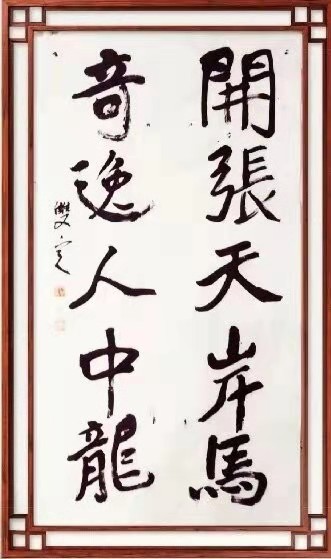 開張天岸馬
奇逸人中龍
雙定